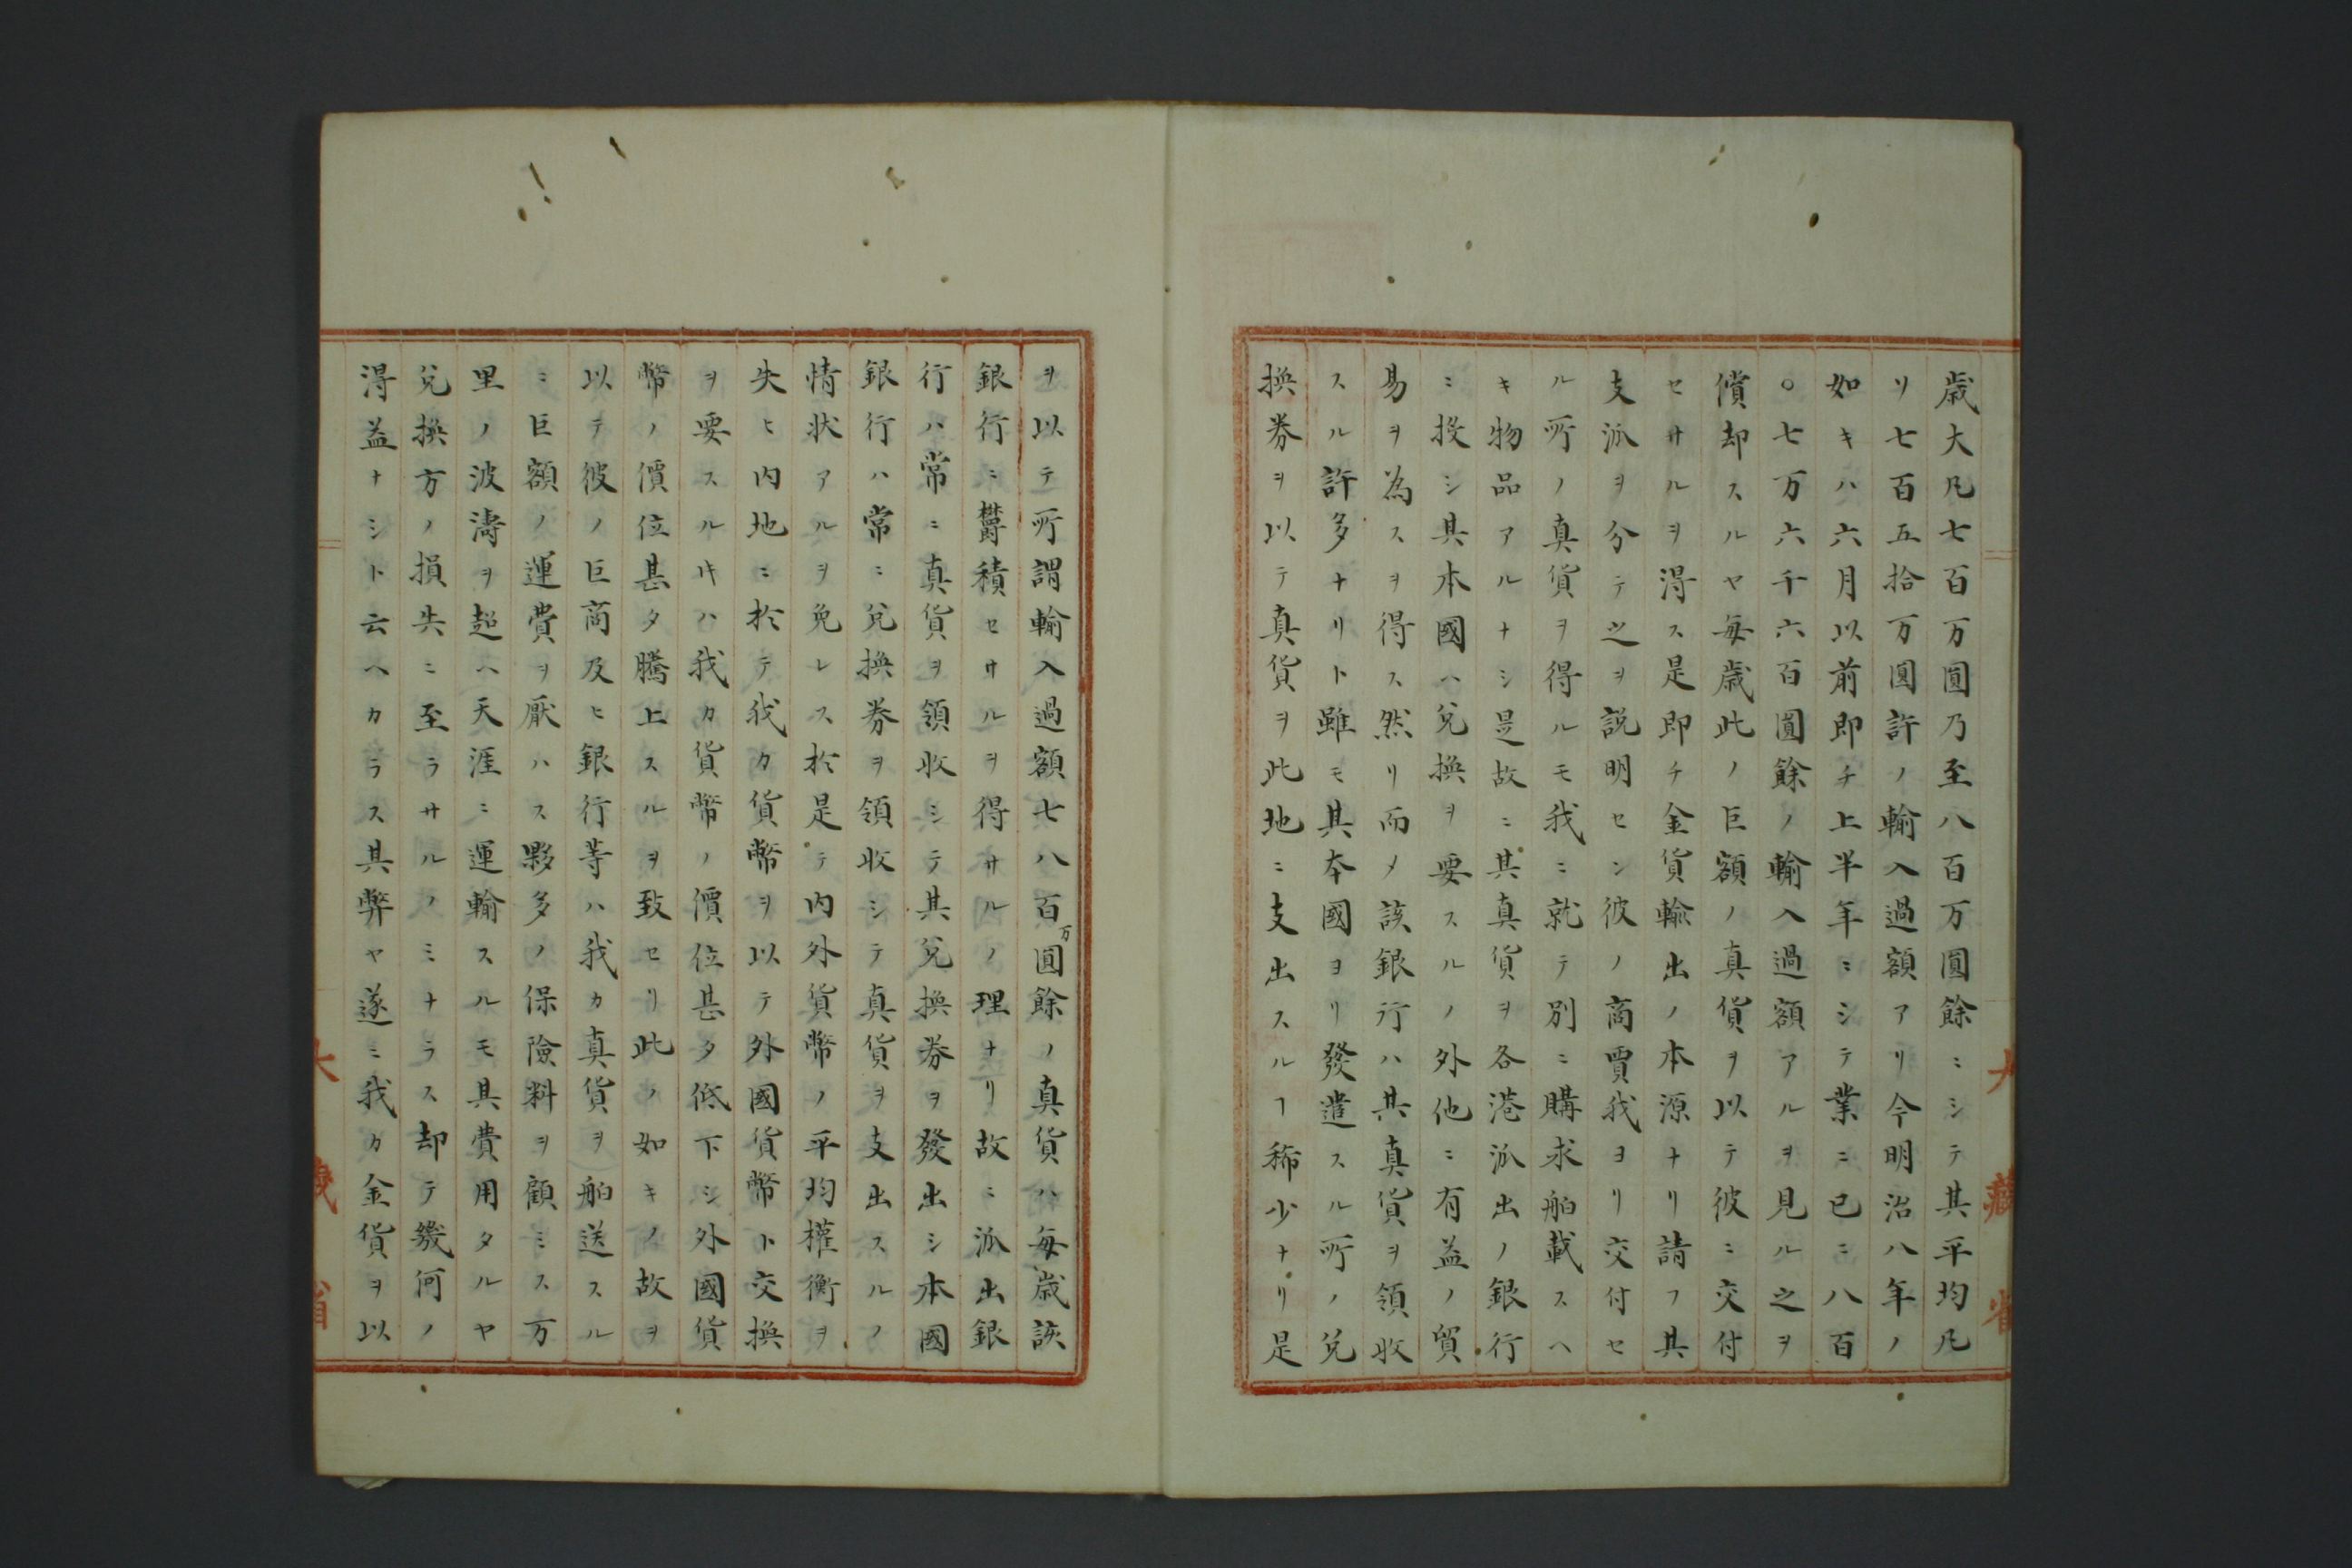 歳大凡七百万圓乃至八百万圓餘ニシテ其平均凡
ソ七百五拾万圓許ノ輸入過額アリ今明治八年ノ
如キハ六月以前即チ上半年ニシテ業ニ已ニ八百
〇七万六千六百圓餘ノ輸入過額アルヲ見ル之ヲ
償却スルヤ毎歳此ノ巨額ノ真貨ヲ以テ彼ニ交付
セサルヲ得ス是即チ金貨輸出ノ本源ナリ請フ其
支派ヲ分テ之ヲ説明セン彼ノ商賈我ヨリ交付セ
ル所ノ真貨ヲ得ルモ我ニ就テ別ニ購求舶載スヘ
キ物品アルナシ是故ニ其真貨ヲ各港派出ノ銀行
ニ投シ其本國ヘ兌換ヲ要スルノ外他ニ有益ノ貿
易ヲ為スヲ得ス然リ而〆該銀行ハ其真貨ヲ領收
スル許多ナリト雖モ其本國ヨリ發遣スル所ノ兌
換券ヲ以テ真貨ヲ此地ニ支出スルヿ稀少ナリ是
ヲ以テ所謂輸入過額七八百万圓餘ノ真貨ハ毎歳該
銀行ニ欝積セサルヲ得サルノ理ナリ故ニ派出銀
行ハ常ニ真貨ヲ領收シテ其兌換券ヲ發出シ本國
銀行ハ常ニ兌換券ヲ領收シテ真貨ヲ支出スルノ
情状アルヲ免レス於是テ内外貨幣ノ平均權衡ヲ
失ヒ内地ニ於テ我カ貨幣ヲ以テ外國貨幣ト交換
ヲ要スル𪜈ハ我カ貨幣ノ價位甚タ低下シ外國貨
幣ノ價位甚タ騰上スルヲ致セリ此ノ如キノ故ヲ
以テ彼ノ巨商及ヒ銀行等ハ我カ真貨ヲ舶送スル
ニ巨額ノ運費ヲ厭ハス夥多ノ保險料ヲ顧ミス万
里ノ波濤ヲ超ヘ天涯ニ運輸スルモ其費用タルヤ
兌換方ノ損失ニ至ラサルノミナラス却テ幾何ノ
得益ナシト云ヘカラス其弊ヤ遂ニ我カ金貨ヲ以
大藏省